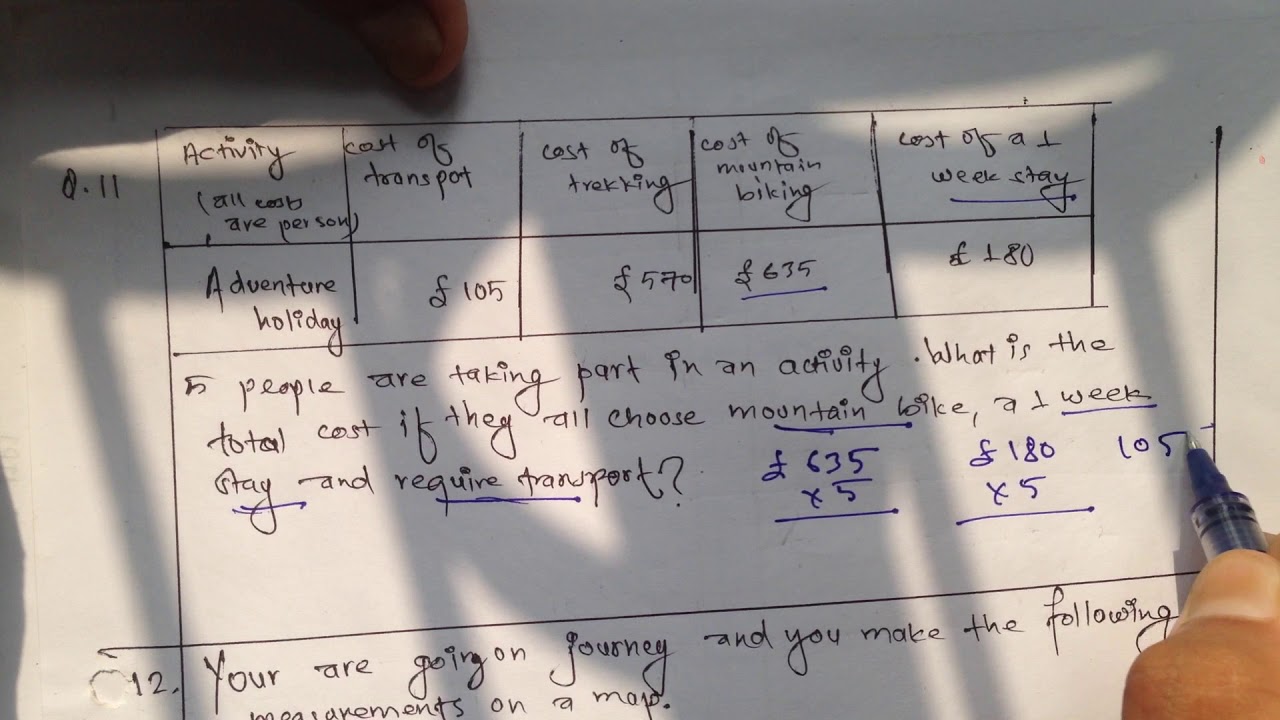 Q.11
Activity
(all cost
are person)
cost of
transpot
cost of
trekking
cost of
mountain
biking
cost of a 1
week stay
Adventure
holiday
£ 105
£ 570
£ 635
£ 180
5 people are taking part in an activity. What is the
total cost if they all choose mountain bike, a 1 week
stay and require transport?
£ 635
x 5
£ 180
x 5
105
12. Your are going on journey and you make the following
measurements on a map.